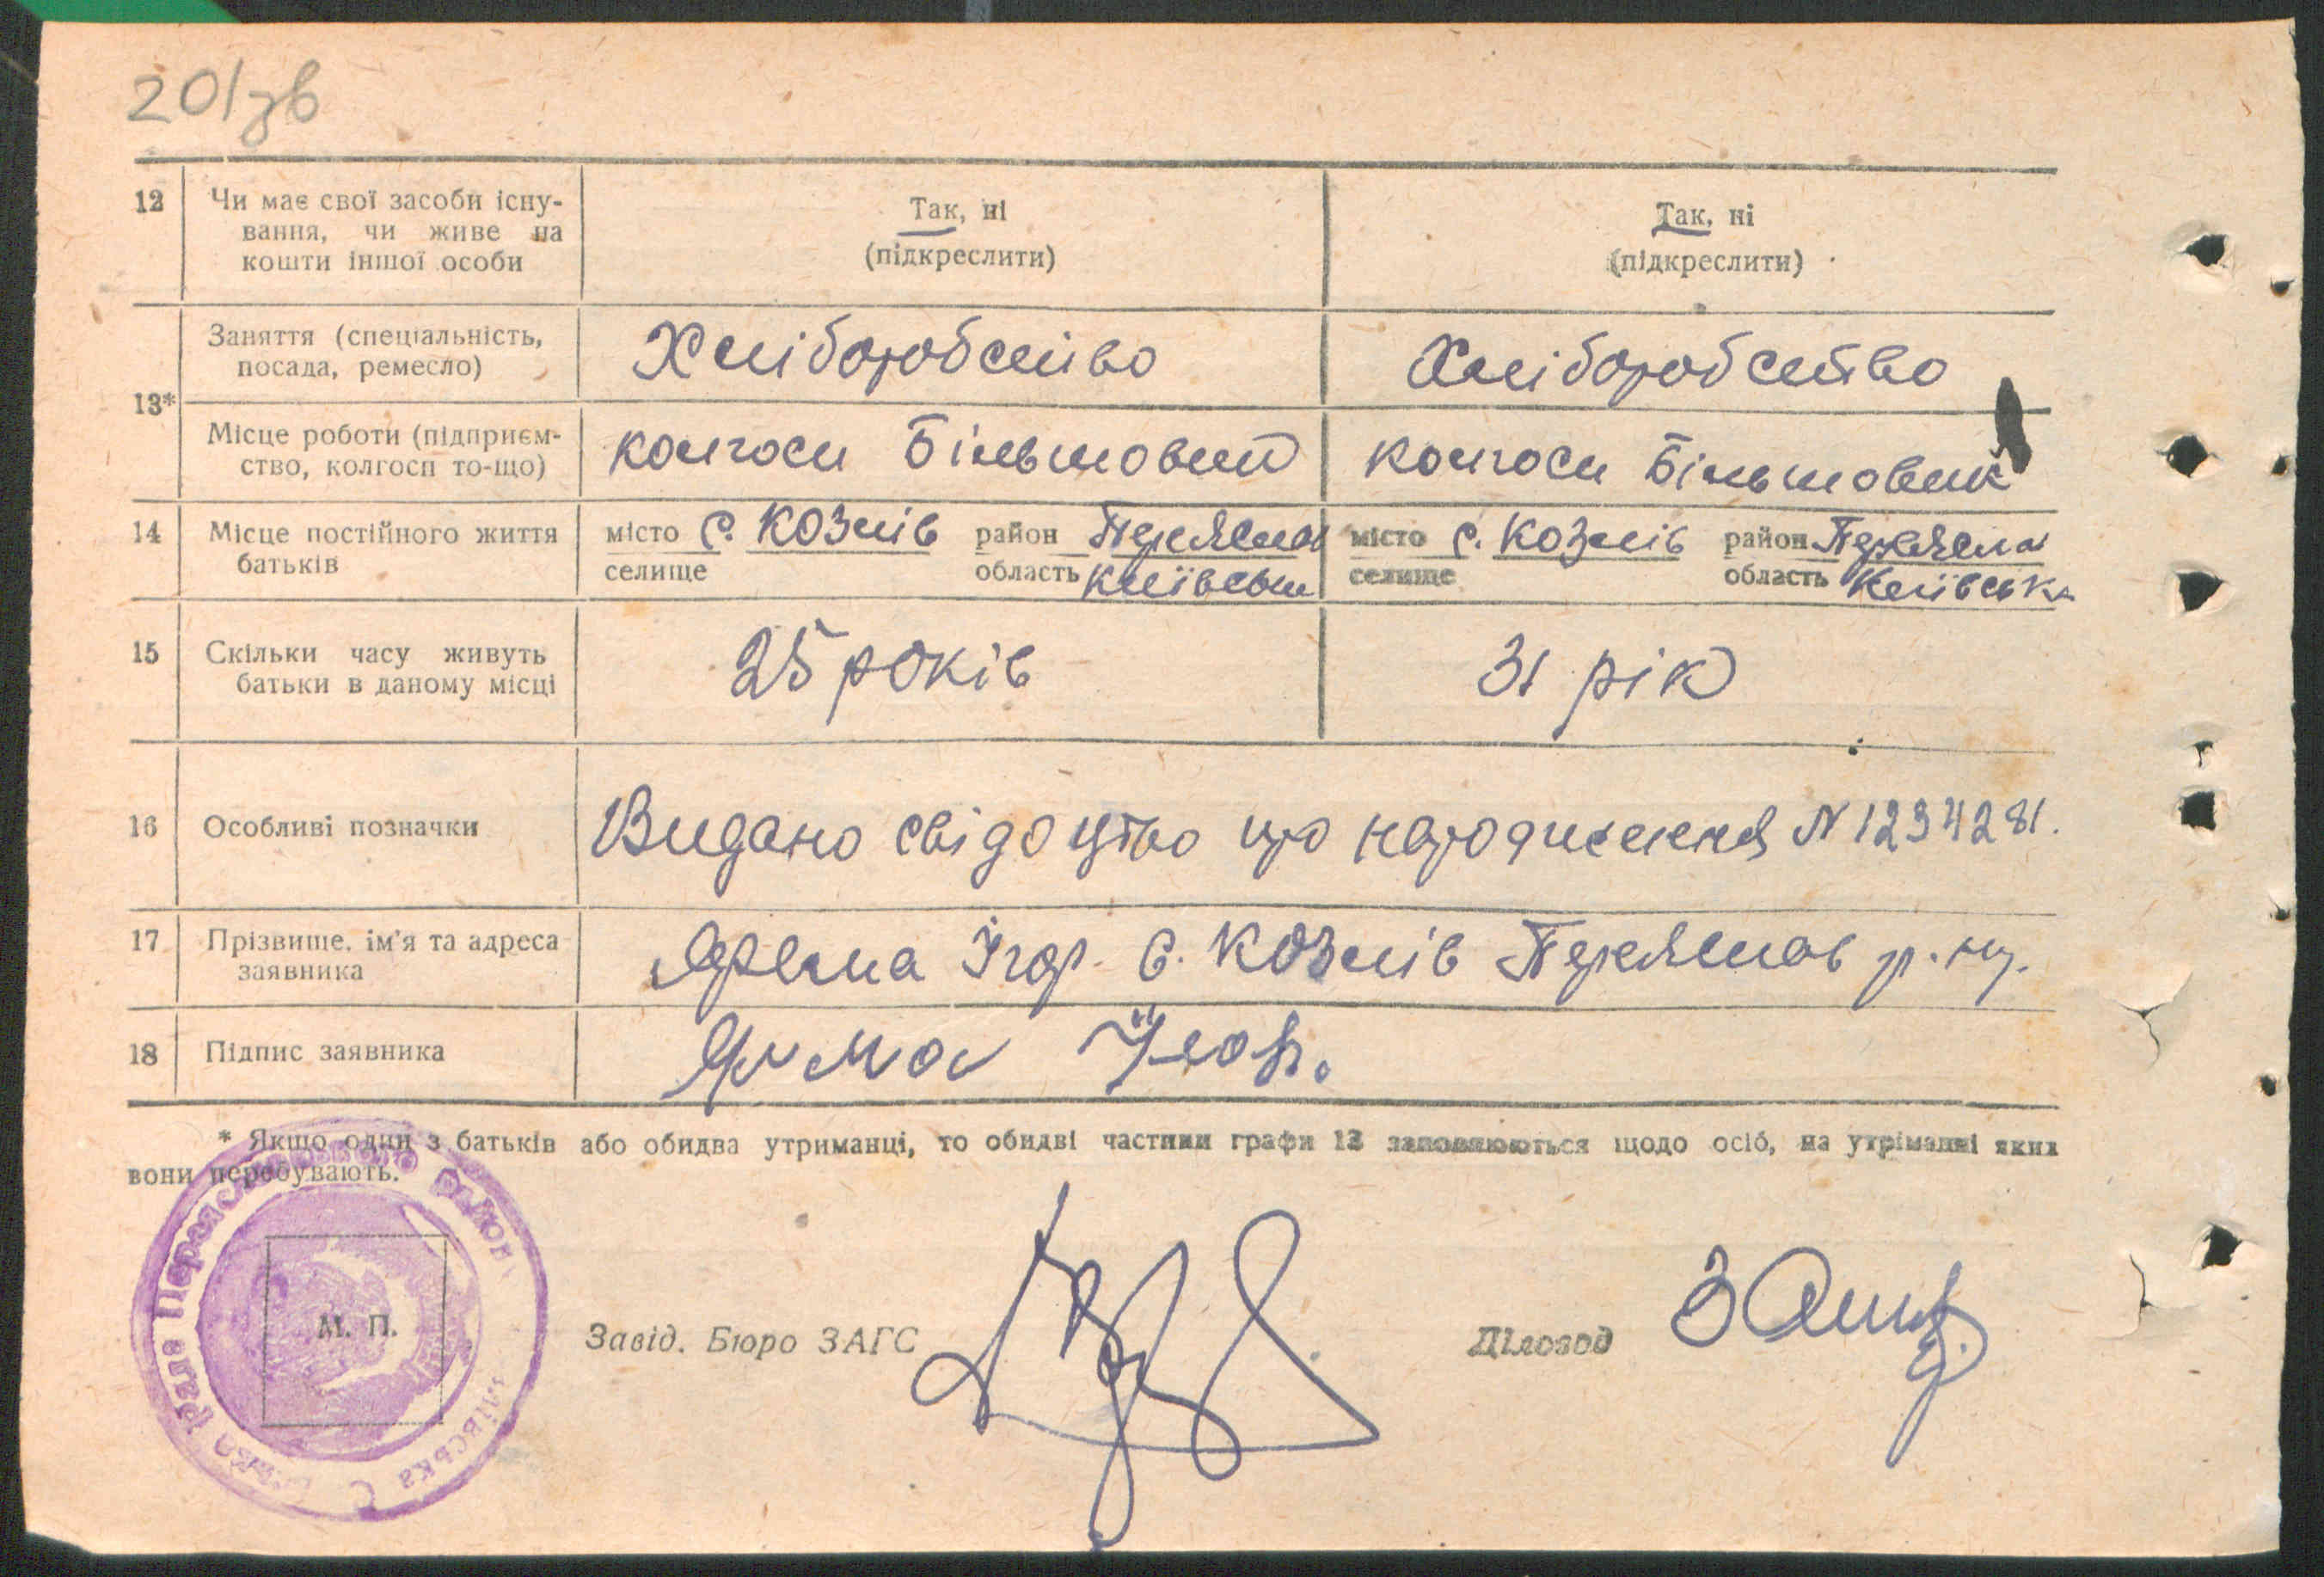 201зв
12 Чи має свої засоби існу- Так, ні Так, ні
вання, чи живе на (підкреслити) (підкреслити)
кошти іншої особи
13* Заняття (спеціальність, Хліборобство Хліборобство
посада, ремесло)
Місце роботи (підприєм- колгосп Більшовик колгосп Більшовик
ство, колгосп то-що)
14 Місце постійного життя місто с. Козлів район Переясла місто с. Козлів район Переясла
батьків селище область Київськ селище область Київська
15 Скільки часу живуть 25 років 31 рік
батьки в даному місці
16 Особливі позначки Видано свідоцтво про народження N 1234281.
17 Прізвище, ім'я та адреса Ярема Ігор. с. Козлів Переяслав р. ну.
заявника
18 Підпис заявника
* Якщо один з батьків або обидва утриманці, то обидві частини графи 13 заповнюються щодо осіб, на утріманні яких
вони перебувають.
М. П. Завід. Бюро ЗАГС Діловод